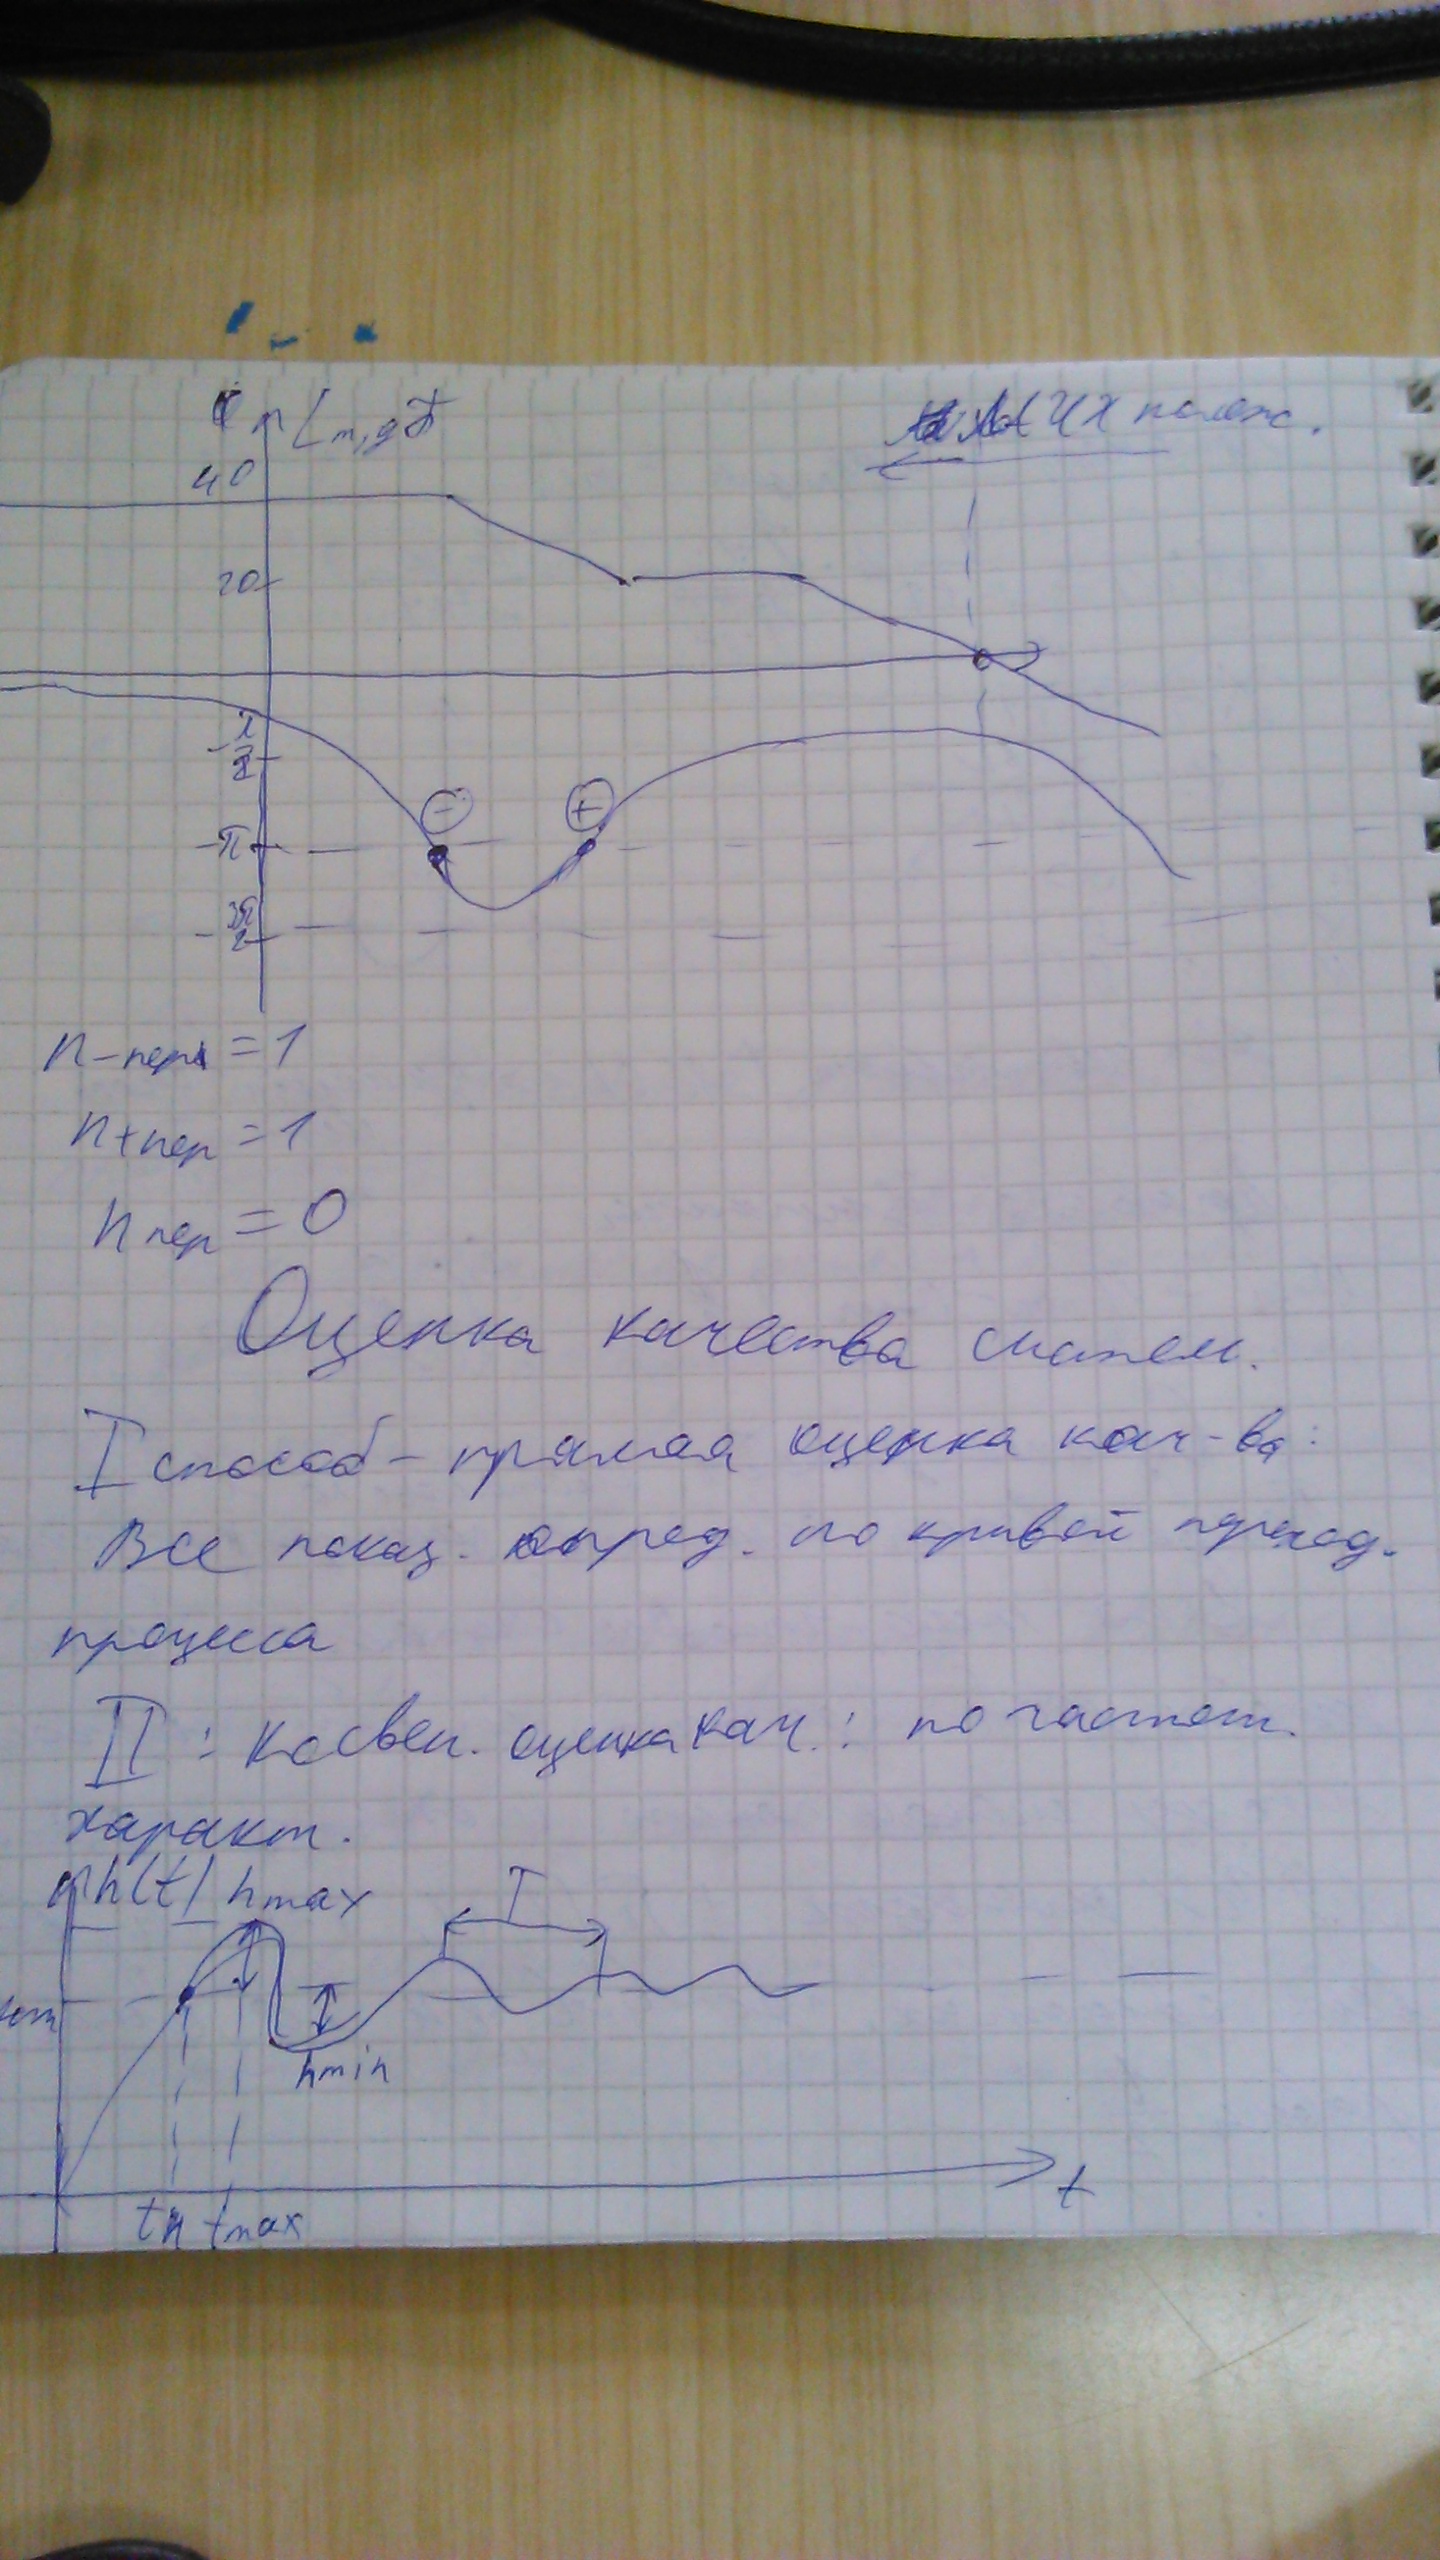 Lm, дБ
ЛАЧХ полож.
40
20
-π/2
-π
-3π/2
-
+
n-пер = 1
n+пер = 1
nпер = 0
Оценка качества систем.
I способ - прямая оценка кач-ва:
Все показ. опред. по кривой переход.
процесса
II: косвен. оценка кач.: по частот.
характ.
h(t) hmax
T
hmin
tн tmax
t